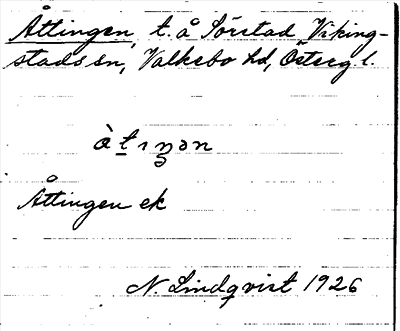 Åttingen, t. å Sörstad Viking-
stads sn, Valkebo hd, Österg l.
Åttingen ek
N. Lindqvist 1926